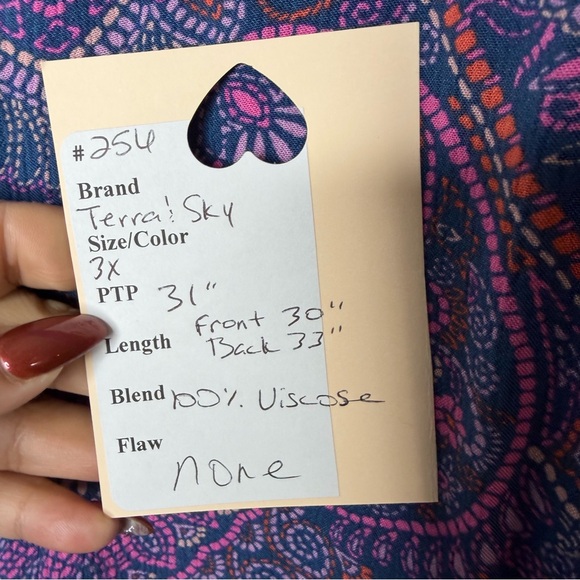 #256
Brand
Terra! Sky
Size/Color
3X
PTP 31"
Front 30"
Length Back 33"
Blend 100% Viscose
Flaw
none